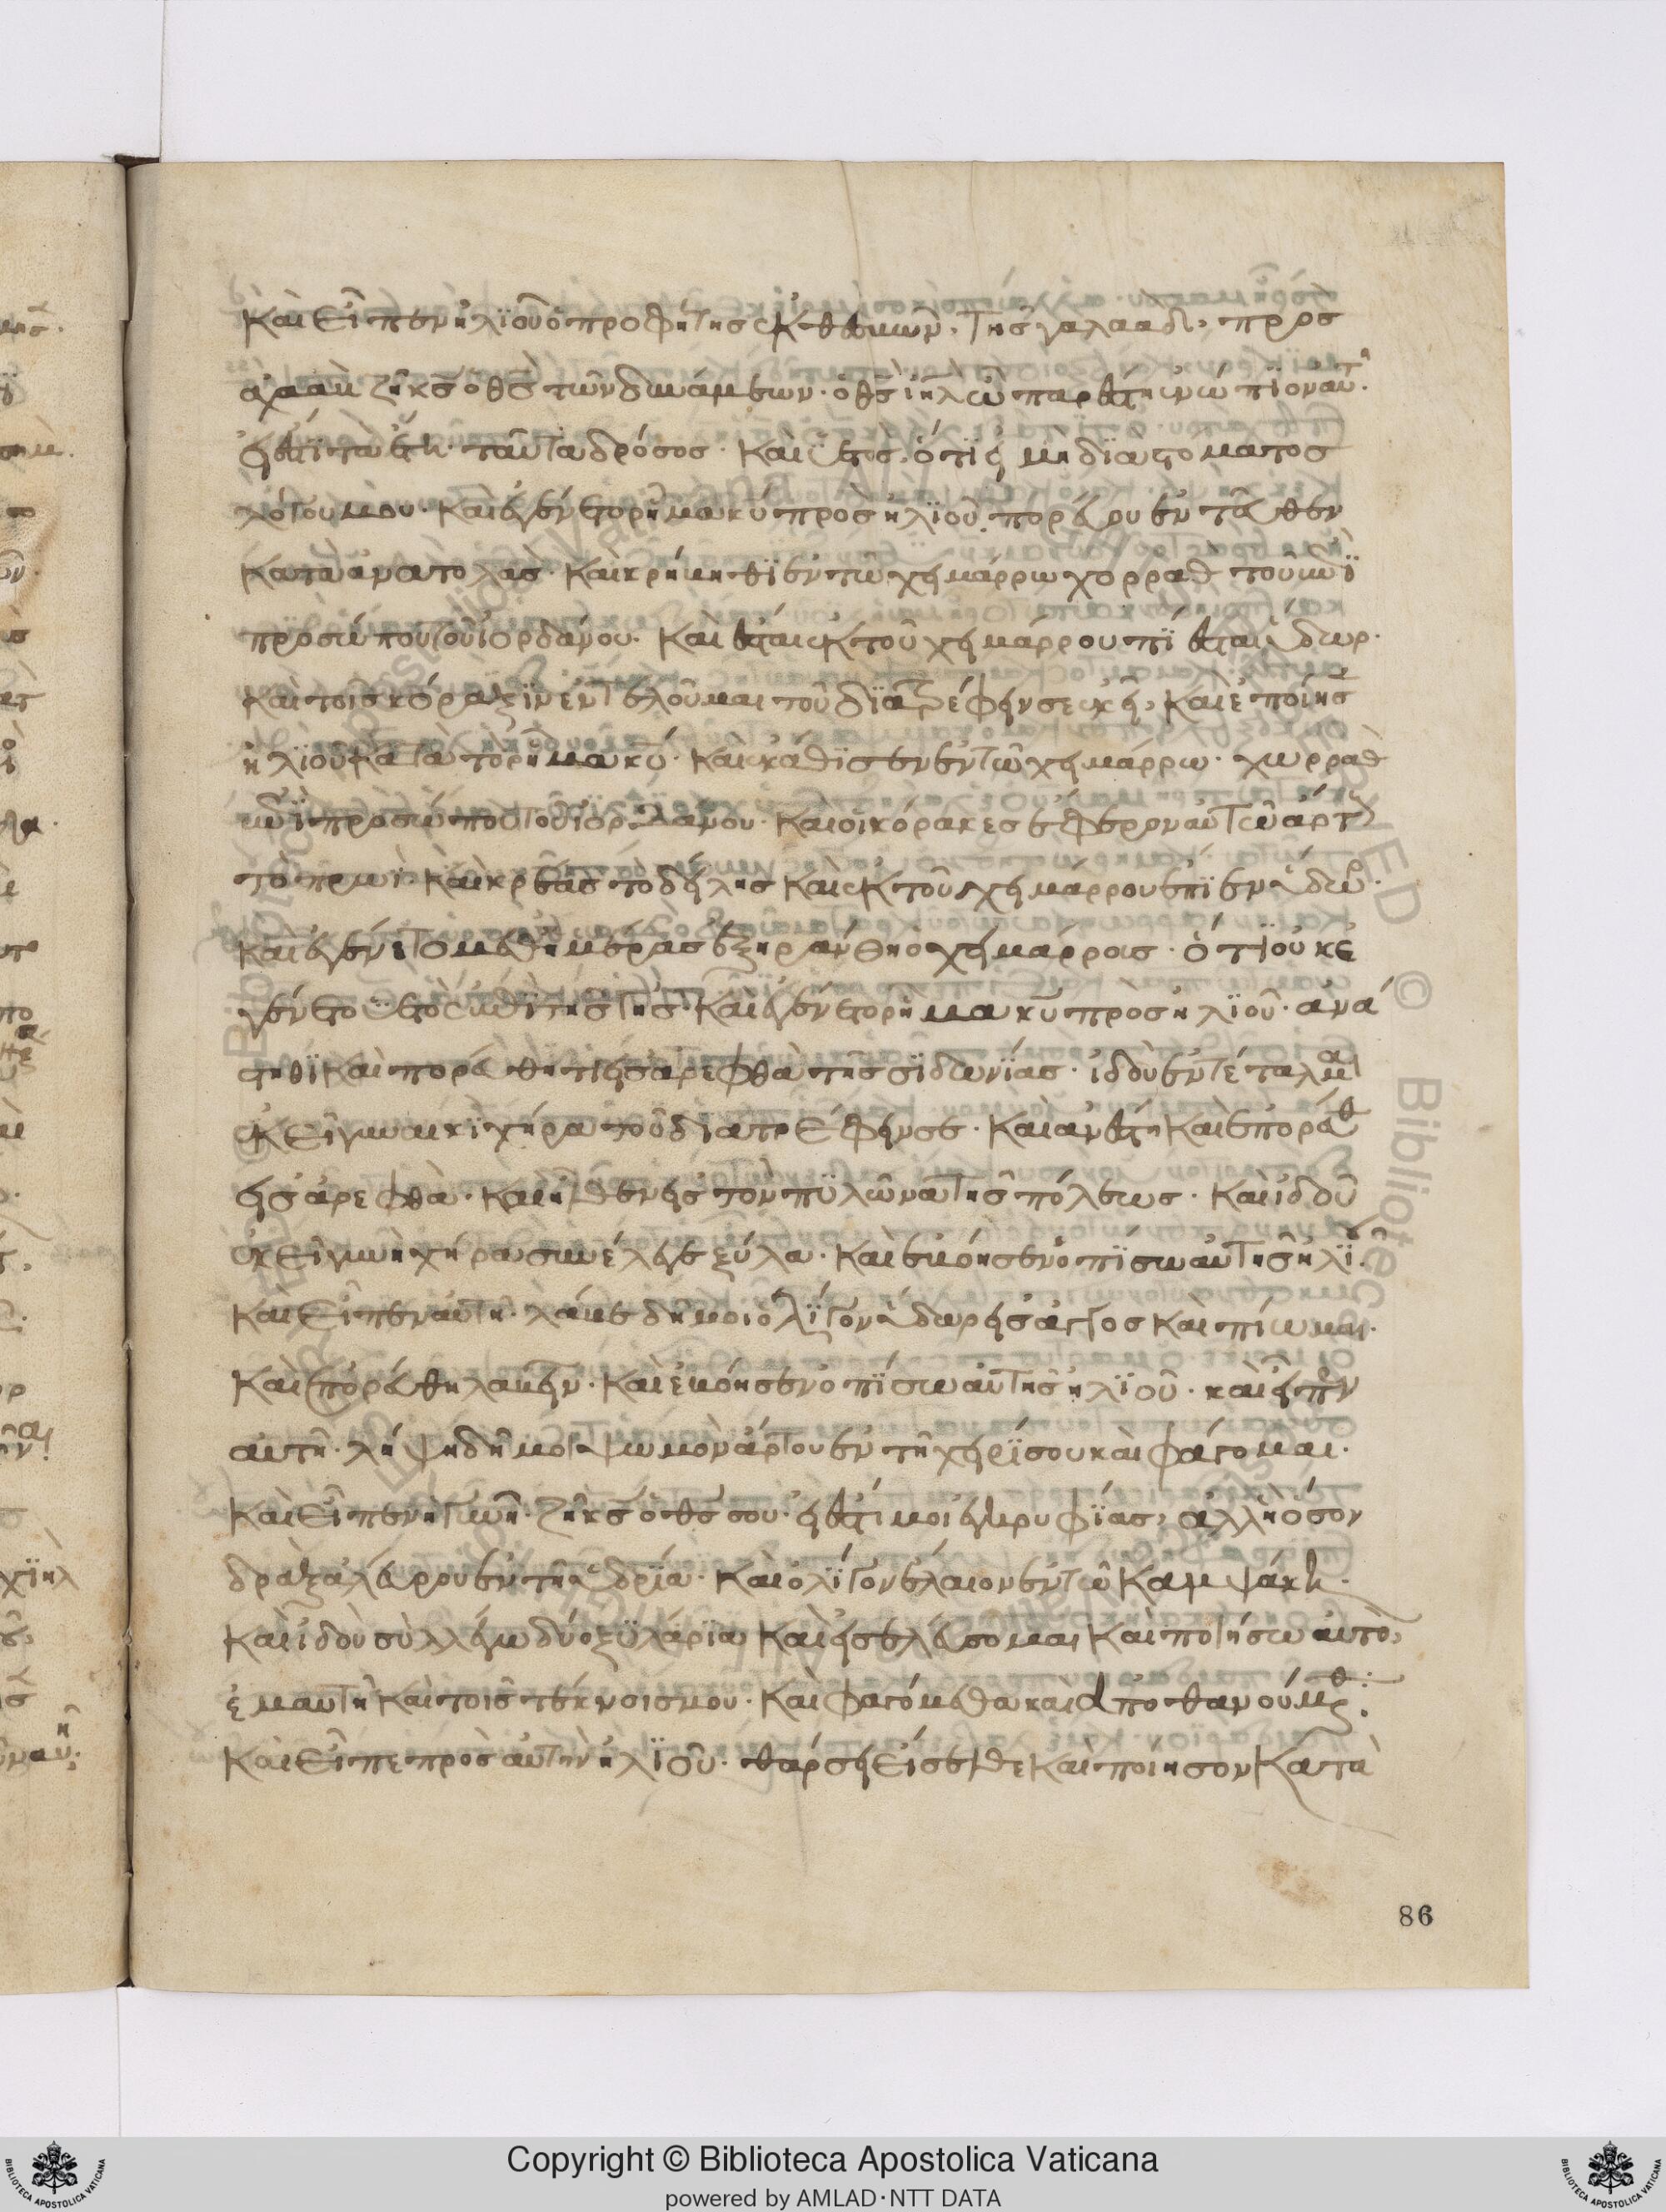 Καὶ εἶπεν ἠλϊοὺ ὁ προφήτης ἐκ θεσβῶν. τῆς γαλαάδ, πρὸς
ἀχαὰβ ζῆ κς ὁ θς τῶν δυνάμεων. ὁ θς ιηλ ὧ παρέστην ἐνώπϊον αὐτ.
εἰ ἔσται τὰ ἔτη ταῦτα δρόσος. Καὶ ὑετὸς, ὅτϊ εἰ μὴ δϊὰ στόματος
λόγου μου. Καὶ ἐγένετο ρῆμα κυ πρὸς ἠλϊοὺ. πορεύου ἐντεῦθεν
κατὰ ἀνατολάς. Καὶ κρύβηθϊ ἐν τῶ χειμάρρω χορρὰθ τοῦ ἐπῒ
προσώπου τοῦ ἰορδάνου. Καὶ ἔσται ἐκ τοῦ χειμάρρου πΐεσαι ὕδωρ.
καὶ τοῖς κόραξϊν ἐντελοῦμαι τοῦ δϊατρέφειν σε ἐκεῖ, Καὶ ἐποίησ
ἠλϊοὺ κατὰ τὸ ρῆμα κυ. Καὶ ἐκάθϊσεν ἐν τῶ χειμάρρω. χωρρὰθ
ἐπῒ προσώπου τοῦ ἰορδάνου. Καὶ οἱ κόρακες ἔφερον αὐτῶ ἄρτους
τὸ πρωῒ. Καὶ κρέας τὸ δείλης Καὶ ἐκ τοῦ χειμάρρου ἔπϊεν ὕδωρ.
Καὶ ἐγένετο μεθ ἡμέρας ἐξηράνθη ὁ χειμάρρας. ὅτϊ οὐκ ἐ
γένετο ὑετὸς ἐπὶ τῆς γῆς. Καὶ ἐγένετο ρῆμα κυ πρὸς ἠλϊοὺ. ἀνά
στηθϊ Καὶ πορεύθητι εἰς σάρεφθα τῆς σϊδωνΐας. ἰδοὺ ἐντέταλμαι
ἐκεῖ γυναικῒ χήρα τοῦ διατρέφειν σε. Καὶ ἀνέστη Καὶ ἐπορεύθ
εἰς σάρεφθα. Καὶ ἦλθεν εἰς τὸν πϋλῶνα τῆς πόλεως. Καὶ ἰδοὺ
ἐκεῖ γυνὴ χήρα συνέλεγε ξύλα. Καὶ ἐβόησεν ὀπΐσω αὐτῆς ἠλϊοὺ.
Καὶ εἶπεν αὐτῆ. λάβε δή μοι ὀλΐγον ὕδωρ εἰς ἄγγος Καὶ πίωμαι.
Καὶ ἐπορεύθη λαβεῖν. Καὶ ἐβόησεν ὀπΐσω αὐτῆς ἠλϊοὺ. καὶ εἶπεν
αὐτῆ. λήψη δή μοι ψωμὸν ἄρτου ἐν τῆ χειρΐ σου καὶ φάγομαι.
Καὶ εἶπεν ἡ γυνὴ. ζῆ κς ὁ θς σου. εἰ ἔστι μοι ἐγκρυφΐας, ἀλλ' ἢ ὅσον
δρὰξ ἀλεύρου ἐν τῆ ὑδρΐα. Καὶ ὀλΐγον ἔλαιον ἐν τῶ Καμψάκη.
Καὶ ἰδοὺ συλλέγω δύο ξϋλάρϊα Καὶ εἰσελεύσομαι Καὶ ποιήσω αὐτὸ,
ἐμαυτῆ Καὶ τοῖς τέκνοις μου. Καὶ φαγόμεθα καὶ ἀποθανούμεθ.
Καὶ εἶπε πρὸς αὐτὴν ἠλϊοὺ. θάρσει εἴσελθε Καὶ ποίησον Κατὰ
86
Copyright © Biblioteca Apostolica Vaticana
powered by AMLAD·NTT DATA